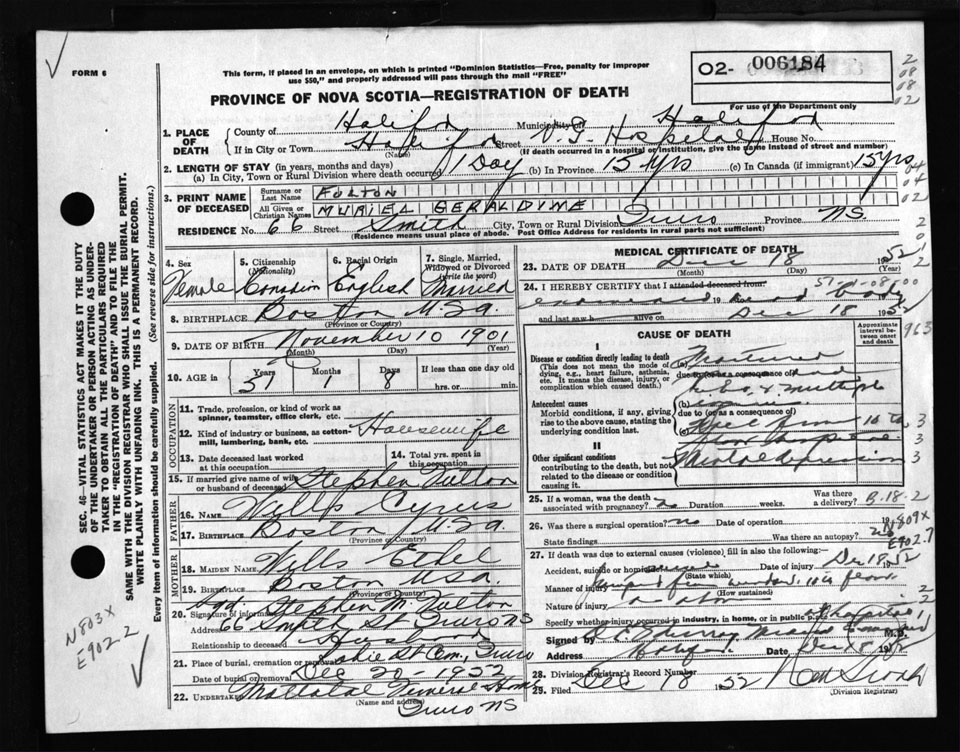 FORM 6
This form, if placed in an envelope, on which is printed "Dominion Statistics—Free, penalty for improper
use $50," and properly addressed will pass through the mail "FREE"
O2- 006184
PROVINCE OF NOVA SCOTIA—REGISTRATION OF DEATH
For use of the Department only
1. PLACE OF DEATH
County of Halifax Municipality of Halifax
If in City or Town Halifax Street Hospital House No.
(Name) (If death occurred in a hospital or institution, give the name instead of street and number)
2. LENGTH OF STAY (in years, months and days)
(a) In City, Town or Rural Division where death occurred 1 Day (b) In Province 15 yrs (c) In Canada (if immigrant) 15 yrs
3. PRINT NAME OF DECEASED
Surname or Last Name FULTON
All Given or Christian Names MURIEL GERALDINE
RESIDENCE No. 66 Street Smith City, Town or Rural Division Truro Province NS
(Residence means usual place of abode. Post Office Address for residents in rural parts not sufficient)
4. Sex Female
5. Citizenship (Nationality) Canadian
6. Racial Origin English
7. Single, Married, Widowed or Divorced (write the word) Married
8. BIRTHPLACE Boston U.S.A.
(Province or Country)
9. DATE OF BIRTH November 10 1901
(Month) (Day) (Year)
10. AGE in Years 51 Months 1 Days 8 If less than one day old hrs. or min.
OCCUPATION
11. Trade, profession, or kind of work as spinner, teamster, office clerk, etc.
12. Kind of industry or business, as cotton-mill, lumbering, bank, etc. Housewife
13. Date deceased last worked at this occupation
14. Total yrs. spent in this occupation
15. If married give name of wife or husband of deceased Stephen Fulton
FATHER
16. Name Wills Cyrus
17. BIRTHPLACE Boston U.S.A.
(Province or Country)
MOTHER
18. MAIDEN NAME Wills Ethel
19. BIRTHPLACE Boston USA.
(Province or Country)
20. Signature of informant Sgd. Stephen M. Fulton
Address 66 Smith St Truro NS
Relationship to deceased Husband
21. Place of burial, cremation or removal Robie St Cem, Truro
Date of burial or removal Dec 20 1952
22. Undertaker Mattatal Funeral Home
(Name and address)
Truro NS
MEDICAL CERTIFICATE OF DEATH
23. DATE OF DEATH Dec 18 1952
(Month) (Day) (Year)
24. I HEREBY CERTIFY that I attended deceased from:
examined 19 dead body
and last saw h alive on Dec 18 1952
CAUSE OF DEATH
Approximate interval between onset and death
I
Disease or condition directly leading to death
(This does not mean the mode of dying, e.g., heart failure, asthenia, etc. It means the disease, injury, or complication which caused death.)
due to (or as a consequence of)
multiple
Antecedent causes
Morbid conditions, if any, giving rise to the above cause, stating the underlying condition last.
injuries
due to (or as a consequence of)
II
Other significant conditions
contributing to the death, but not related to the disease or condition causing it
Mental depression
25. If a woman, was the death associated with pregnancy? no Duration weeks. Was there a delivery?
26. Was there a surgical operation? no Date of operation
State findings Was there an autopsy? no
27. If death was due to external causes (violence) fill in also the following:
Accident, suicide or homicide Date of injury Dec 18 1952
(State which)
Manner of injury window 10th floor
(How sustained)
Nature of injury
Specify whether injury occurred in industry, in home, or in public place
Signed by M.D.
Address Halifax Date, 1952
28. Division Registrar's Record Number
29. Filed Dec 18 1952
(Division Registrar)
SEC. 46—VITAL STATISTICS ACT MAKES IT THE DUTY
OF THE UNDERTAKER OR PERSON ACTING AS UNDER-
TAKER TO OBTAIN ALL THE PARTICULARS REQUIRED
IN THE "REGISTRATION OF DEATH" AND TO FILE THE
SAME WITH THE DIVISION REGISTRAR WHO SHALL ISSUE THE BURIAL PERMIT.
WRITE PLAINLY WITH UNFADING INK. THIS IS A PERMANENT RECORD.
Every item of information should be carefully supplied. (See reverse side for instructions.)
N803X
E902.2
963
B-18-2
N809X
E902.7